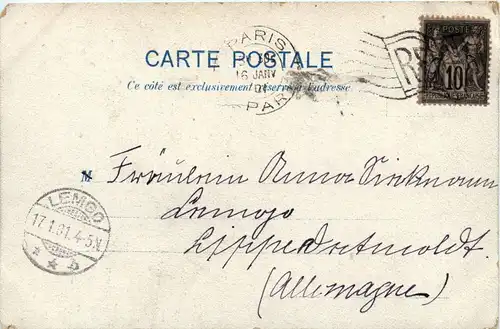 PARIS
16 JANV
PAR
RF
POSTE
10
CARTE POSTALE
Ce côté est exclusivement réservé à l'adresse
M
Fräulein Anna
Lemgo
Lippe Detmoldt.
(Allemagne)
LEMGO
17.1.01.4-5N
* * b